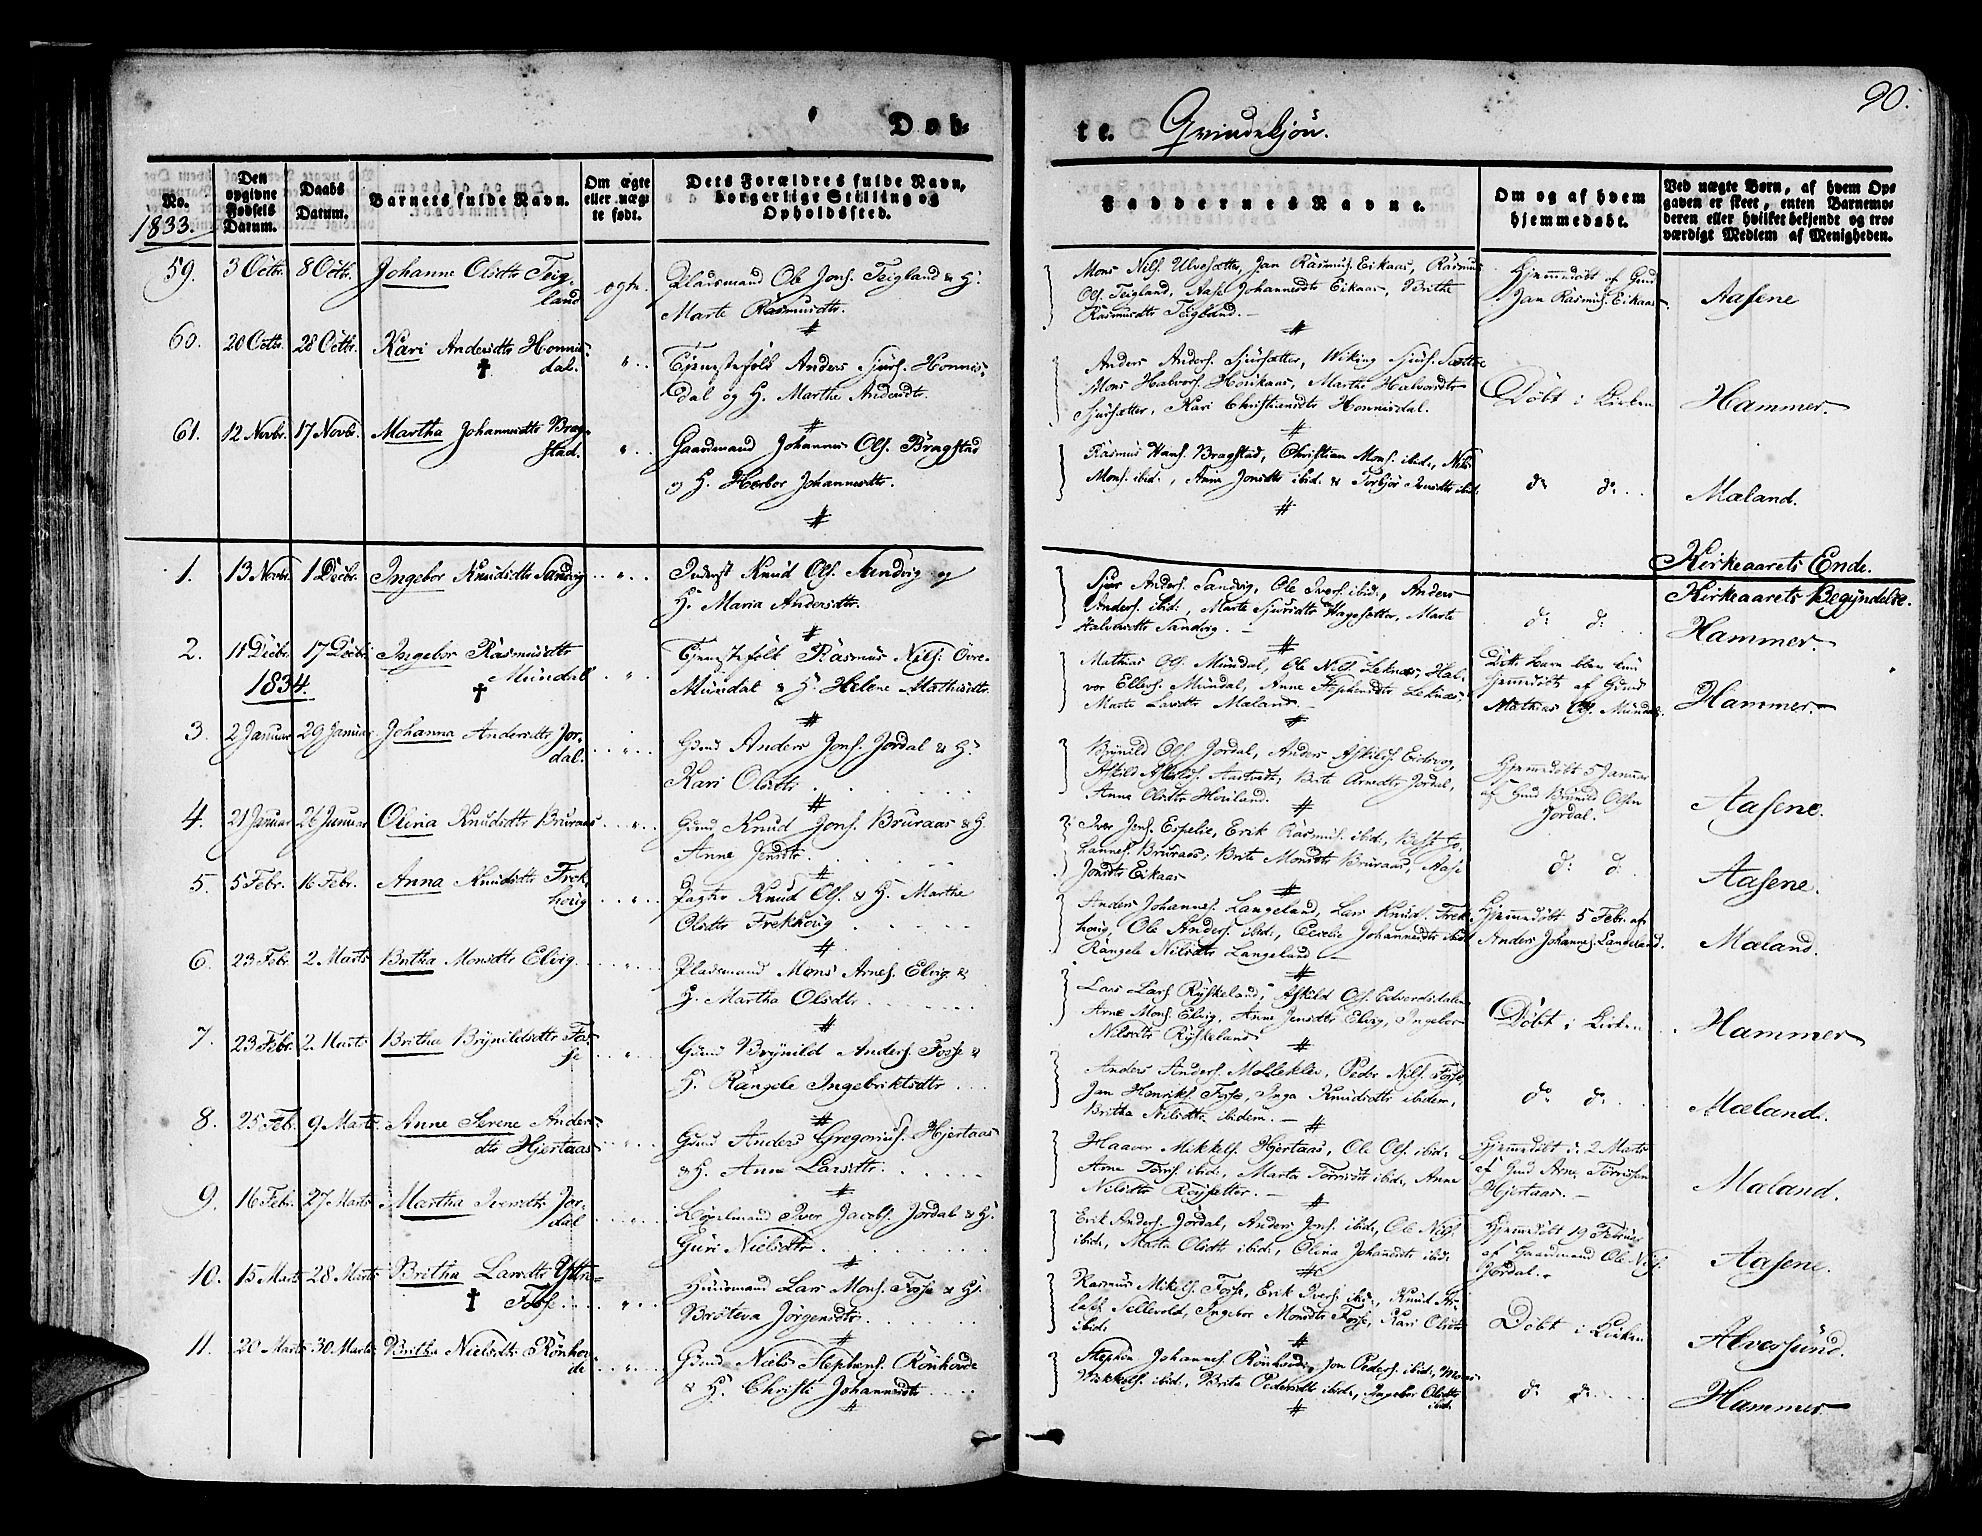 90.
Døb-
te. Qvindekjön.
No.
Den opgivne Fødsels Datum.
Daabs Datum.
Barnets fulde Navn.
Om ægte eller uægte født.
Dets Forældres fulde Navn, borgerlige Stilling og Opholdssted.
Faddernes Navne.
Om og af hvem hjemmedøbt.
Ved uægte Børn, af hvem Opgaven er skeet, enten Barnemoderen eller hvilket bekjendt og troværdigt Medlem af Menigheden.
1833.
59. 3 Octbr. 8 Octbr. Johanne Olsdtr Teigland ægte. Pladsmand Ole Jons. Teigland & H:
Marte Rasmusdtr.
Mons Nils. Ulvesætter, Jan Rasmus. Eikaas, Rasmus
Ols. Teigland, Aase Johannesdtr Eikaas, Brithe
Rasmusdtr Teigland.
Hjemmedöbt af Gmd
Jan Rasmus. Eikaas
Aasene
60. 20 Octbr. 28 Octbr. Kari Andersdtr Honnisdal. † " Tjenestefolk Anders Sjurs. Honnisdal og H. Marthe Andersdtr.
Anders Anders. Sjursætter, Wiking Sjurs. Sætter
Mons Halvors. Horikaas, Marthe Halvorsdtr
Sjursætter, Kari Christiansdtr Honnisdal.
Döbt i Kirken
Hammer.
61. 12 Novbr. 17 Novbr. Martha Johannesdtr Bragstad. " Gaardmand Johannes Ols. Bragstad
& H. Herbor Johannesdtr.
Rasmus Hans. Bragstad, Christian Mons. ibid., Nils
Mons. ibid., Anne Jonsdtr ibid. & Torbjör Iversdtr ibid.
do do
Mæland.
Kirkeaarets Ende.
Kirkeaarets Begyndelse.
1. 13 Novbr. 1 Decbr. Ingebor Knudsdtr Sandvig " Inderst Knud Ols. Sandvig og
H. Maria Andersdtr.
Sjur Anders. Sandvig, Ole Ivers. ibid., Anders
Anders. ibid., Marte Sjursdtr Hagesætter, Marte
Halvorsdtr Sandvig.
do do
Hammer.
2. 11 Decbr. 17 Decbr. Ingebor Rasmusdtr
Mundal † " Tjenestefolk Rasmus Nils. Övre-
Mundal & H Helene Mathisdtr.
Mathias Ols. Mundal, Ole Nils. Leknæs, Halvor Ellers. Mundal, Anne Stephensdtr Leknæs,
Marte Larsdtr Mæland
Hjemmedöbt af Gmd
Mathias Ols. Mundal.
Hammer.
1834.
3. 2 Januar 29 Januar Johanna Andersdtr Jordal. " Gmd Anders Jons. Jordal & H:
Kari Olsdtr
Brynild Ols. Jordal, Anders Askils. Eidsvog,
Brite Arnesdtr Jordal,
Anne Olsdtr Höviland.
Hjemmedöbt 5 Januar
af Gmd Brynild Olsen
Jordal.
Aasene.
4. 21 Januar 26 Januar Olina Knudsdtr Bruraas " Gmd Knud Jons. Bruraas & H.
Anne Jensdtr.
Iver Jens. Espelie, Erik Rasmus. ibid., Johannes. Bruraas, Brite Monsdtr Bruraas, Aase
Jonsdtr Eikaas
do do
Aasene.
5. 5 Febr. 16 Febr. Anna Knudsdtr Frekhoug " Pagter Knud Ols. & H. Marthe
Olsdtr Frekhoug
Anders Johannes. Langeland, Lars Knud. Frekhoug, Ole Anders. ibid., Cecelie Johannesdtr ibid.
Rangele Nilsdtr Langeland
Hjemmedöbt 5 Febr. af
Anders Johannes. Langeland.
Mæland.
6. 23 Febr. 2 Marts Britha Monsdtr Elvig " Pladsmand Mons Arnes. Elvig &
H. Martha Olsdtr.
Lars Lars. Ryskeland, Askild Ols. Edvardsdalen
Arne Mons. Elvig, Anne Jensdtr Elvig, Ingebor
Nilsdtr Ryskeland
Döbt i Kirken
Hammer
7. 23 Febr. 2 Marts. Britha Brynildsdtr Fosse " Gmd Brynild Anders. Fosse &
H. Rangele Ingebriktsdtr
Anders Anders. Molleklev, Peder Nils. Fosse,
Jan Henrik. Fosse, Inga Knudsdtr ibidem,
Britha Nilsdtr ibidem.
do do
Mæland.
8. 25 Feb. 9 Marts. Anne Serene Andersdtr Hjertaas " Gmd Anders Gregorius. Hjertaas
& H. Anne Larsdtr.
Haavor Mikkels. Hjertaas, Ole Ols. ibid.
Arne Torris. ibid., Marta Torrisdtr ibid., Anne
Nilsdtr Röysetter.
Hjemmedöbt d. 2 Marts
af Gmd Arne Torrisen
Hjertaas.
Mæland.
9. 16 Febr. 27 Marts Martha Iversdtr Jordal " Iver Jacobs. Jordal & H.
Guri Nielsdtr
Erik Anders. Jordal, Anders Jons. ibid., Ole Nils.
ibid., Marta Olsdtr ibid., Olina Johannesdtr ibid.
Hjemmedöbt 19 Februar
af Gaardmand Ole Nils.
Jordal.
Aasene.
10. 15 Marts 28 Marts Britha Larsdtr Yttre-
Fosse † " Huusmand Lars Mons. Fosse & H:
Bröteva Jörgensdtr
Rasmus Mikels. Fosse, Erik Ivers. ibid., Knud
Sellevold, Ingebor Monsdtr Fosse, Kari Olsdtr
ibid.
Döbt i Kirken
Alversund.
11. 20 Marts 30 Marts Britha Nielsdtr Rönhovde " Gmd Niels Stephens. Rönhovde
& H. Christi Johannesdtr
Stephen Johannes. Rönhovde, Jon Peders. ibid., Mons
Mikkels. ibid., Brita Pedersdtr ibid., Ingebor Olsdtr
ibid.
do do
Hammer.